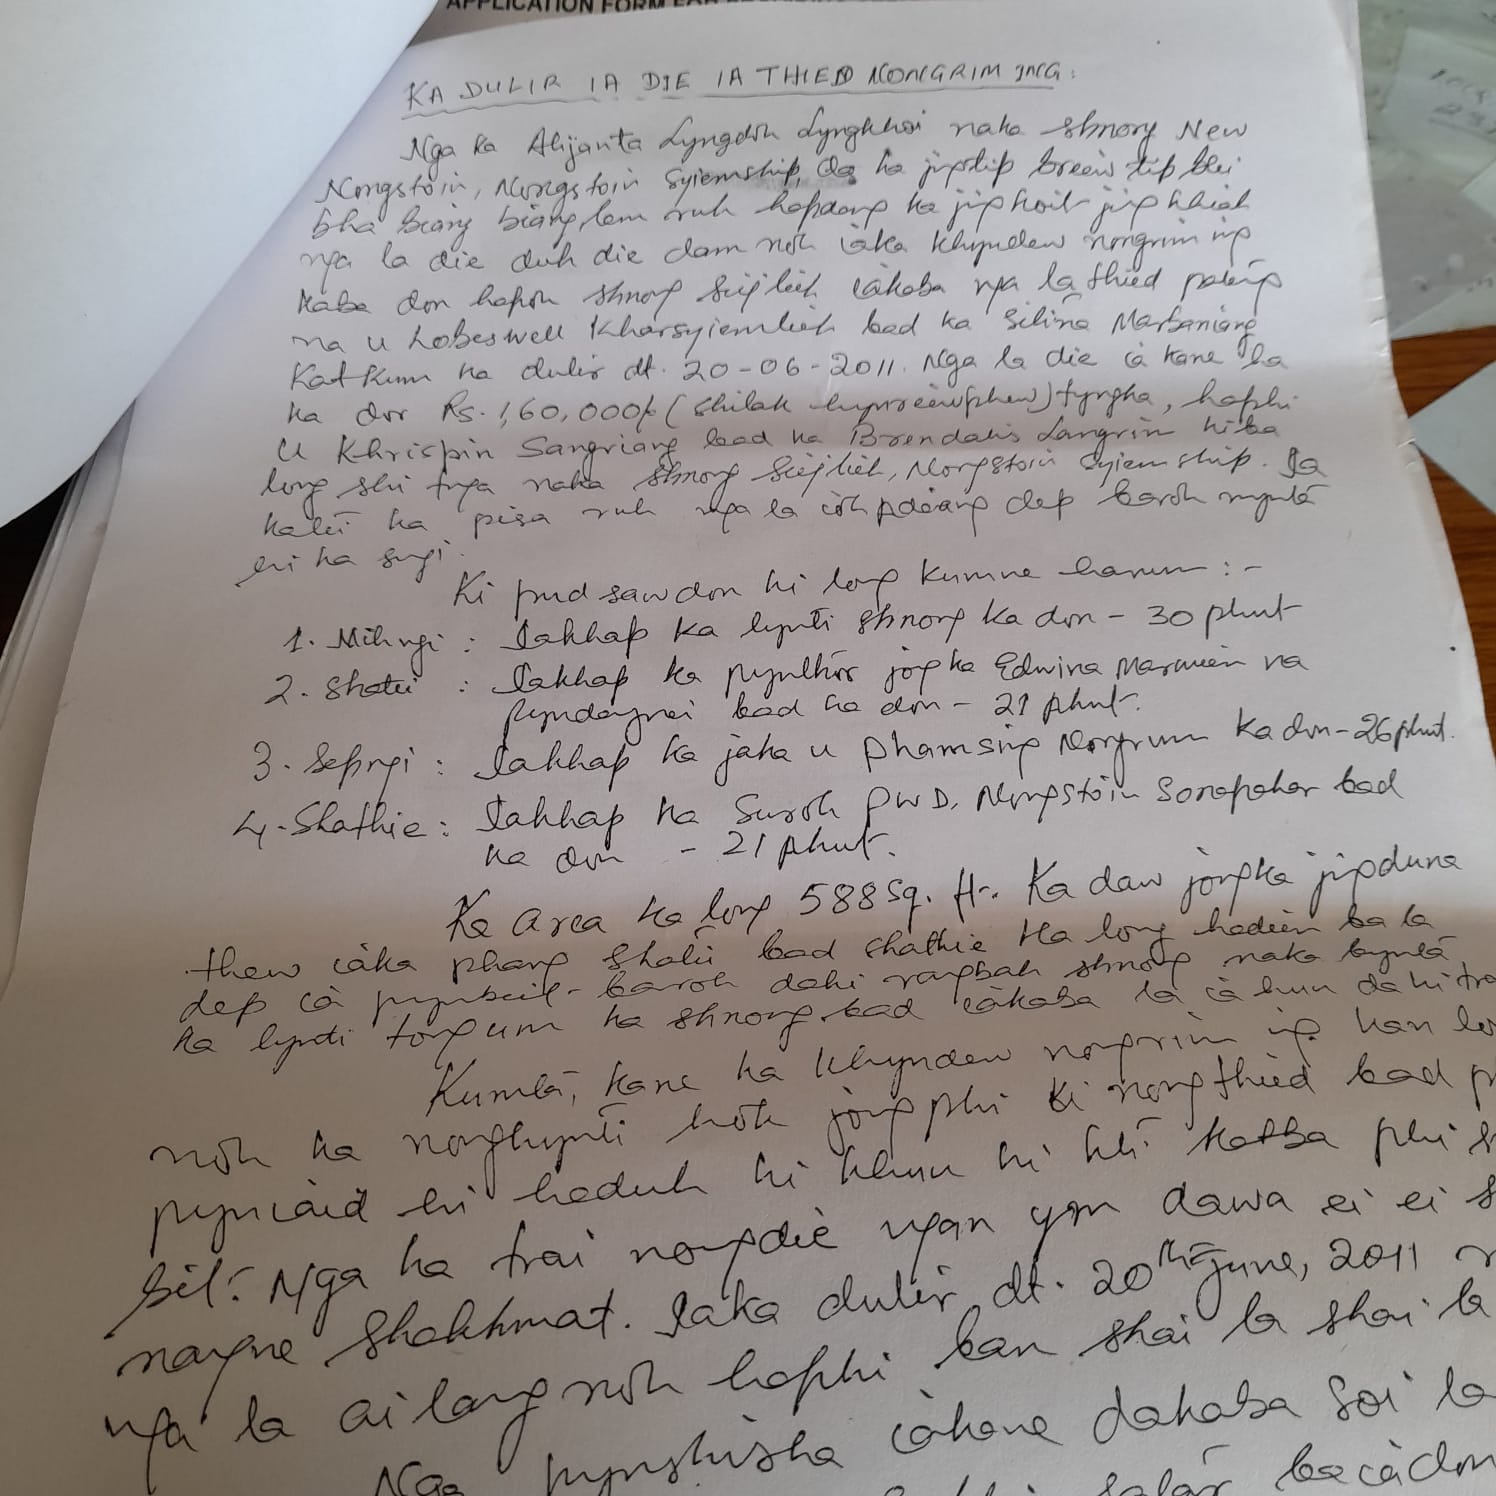 APPLICATION FORM FOR
KA DULIR IA DIE IA THIED NONGRIM ING:
Nga ka Alijanta Lyngdoh Lyngkhoi naka shnong New
Nongstoin, Nongstoin Syiemship, da ka jingtip briew tip blei
bha biang biang, lem ruh hapdeng ka jingkoit jingkhiah
nga la die duh die dam noh ïaka khyndew nongrim ing
kaba don hapoh shnong Siejlieh ïakaba nga la thied pateng
na u Lobeswell Kharsyiemlieh bad ka Silina Marbaniang
Katkum ka dulir dt. 20-06-2011. Nga la die ïa kane la
ka dor Rs. 1,60,000/- (Shilak hynriewphew) tyngka, haphi
U Khrispin Sangriang bad ka Brendalis Langrin kiba
long shi tnga naka shnong Siejlieh, Nongstoin Syiemship. Ïa
katei ka pisa ruh nga la ïoh pdiang dep baroh mynta
hi ka sngi.
Ki pud sawdon ki long kumne harum :-
1. Mihngi : Ïakhap ka lynti shnong ka don - 30 phut
2. Shatei : Ïakhap ka pynthor jong ka Edwina Marwein na
Pyndengrei bad ka don - 21 phut.
3. Sepngi : Ïakhap ka jaka u Phamsing Nongrum ka don - 26 phut.
4. Shathie : Ïakhap ka Surok PWD, Nongstoin Sonapahar bad
ka don - 21 phut.
Ka area ka long 588 sq. ft. Ka daw jong ka jingduna
thew ïaka phang shatei bad shathie ka long hadien ba la
dep ïa pynbeit baroh da ki rangbah shnong naka bynta
ka lynti tong um ka shnong bad ïakaba la ïa hun da ki
Kumta, kane ka khyndew nongrim ing kan
noh ka nongkynti hok jong phi ki nongthied bad
pyniaid hi haduh ki khun ki ksiew katba phi
Nga ka trai nongdie ngan ym dawa ei ei
nangne shakhmat. Ïaka dulir dt. 20th June, 2011
nga la ai lang noh haphi ban shai la shai
Nga pynshisha ïakane dakaba soi